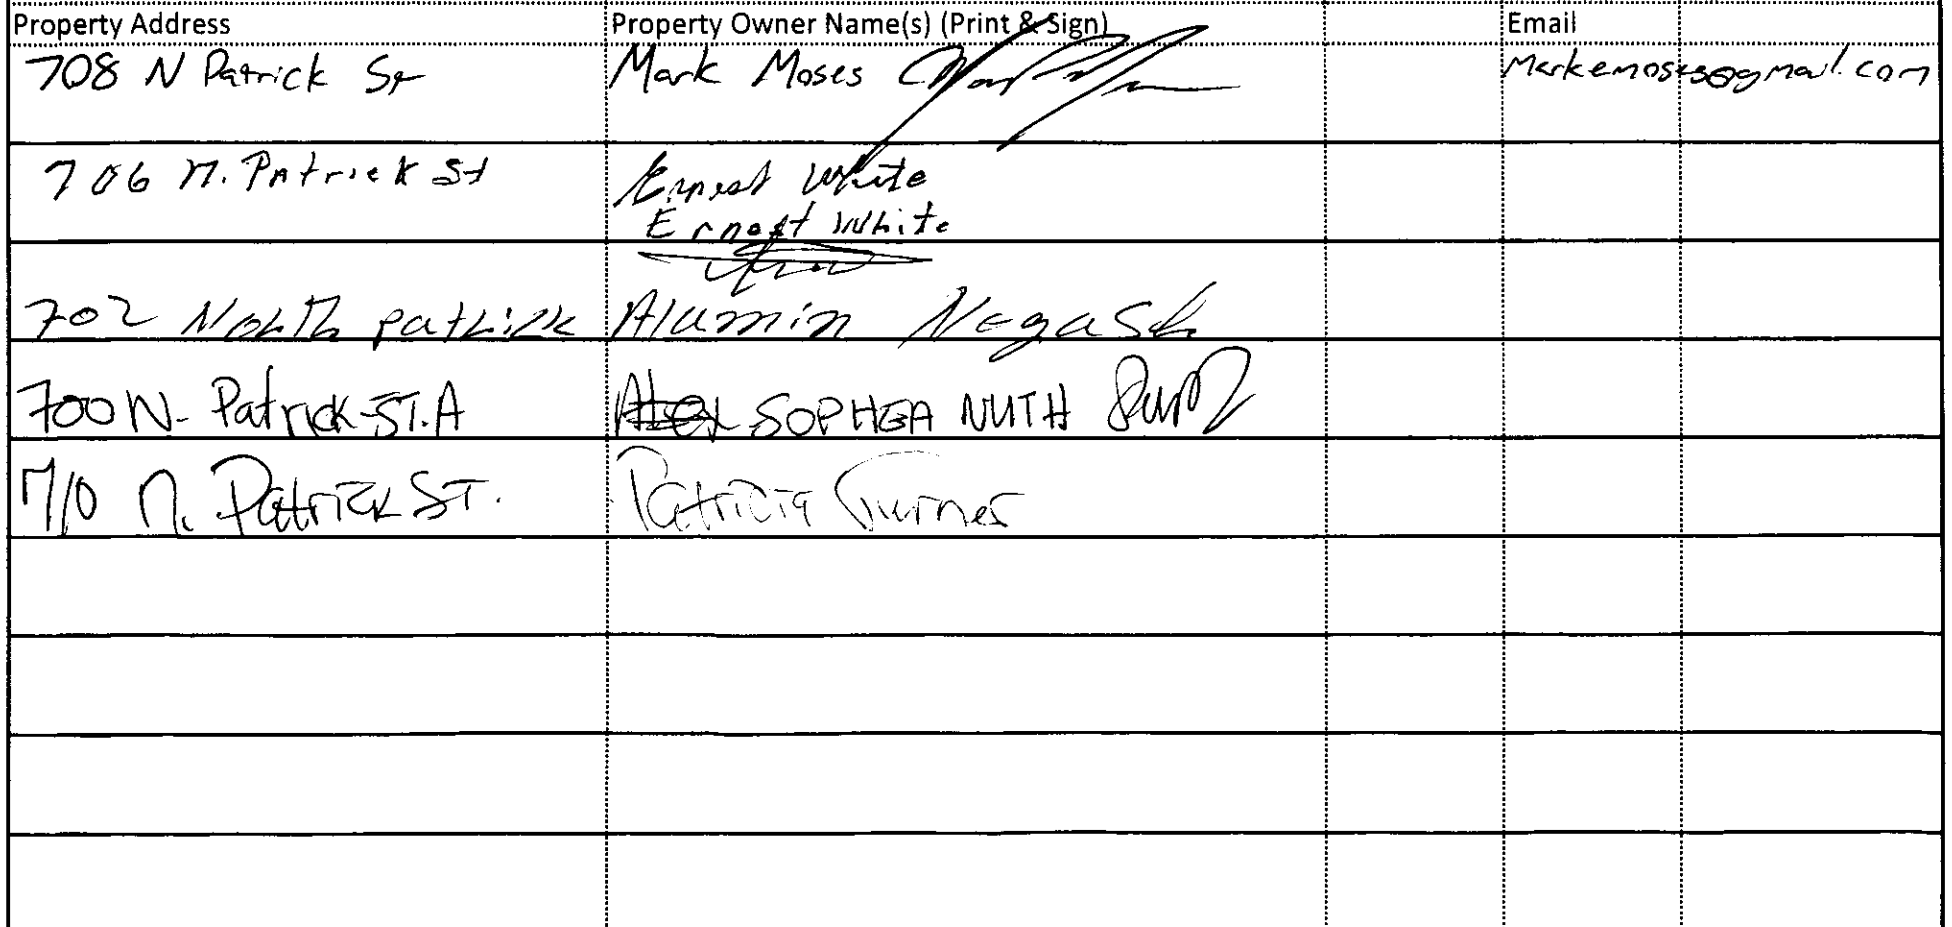 Property Address Property Owner Name(s) (Print & Sign) Email
708 N Patrick St Mark Moses markemoses@gmail.com
706 N. Patrick St Ernest White
Ernest White
702 North patrick Alamin Negash
700 N. Patrick ST. A SOPHEA NUTH
710 N. Patrick ST. Patricia Turner